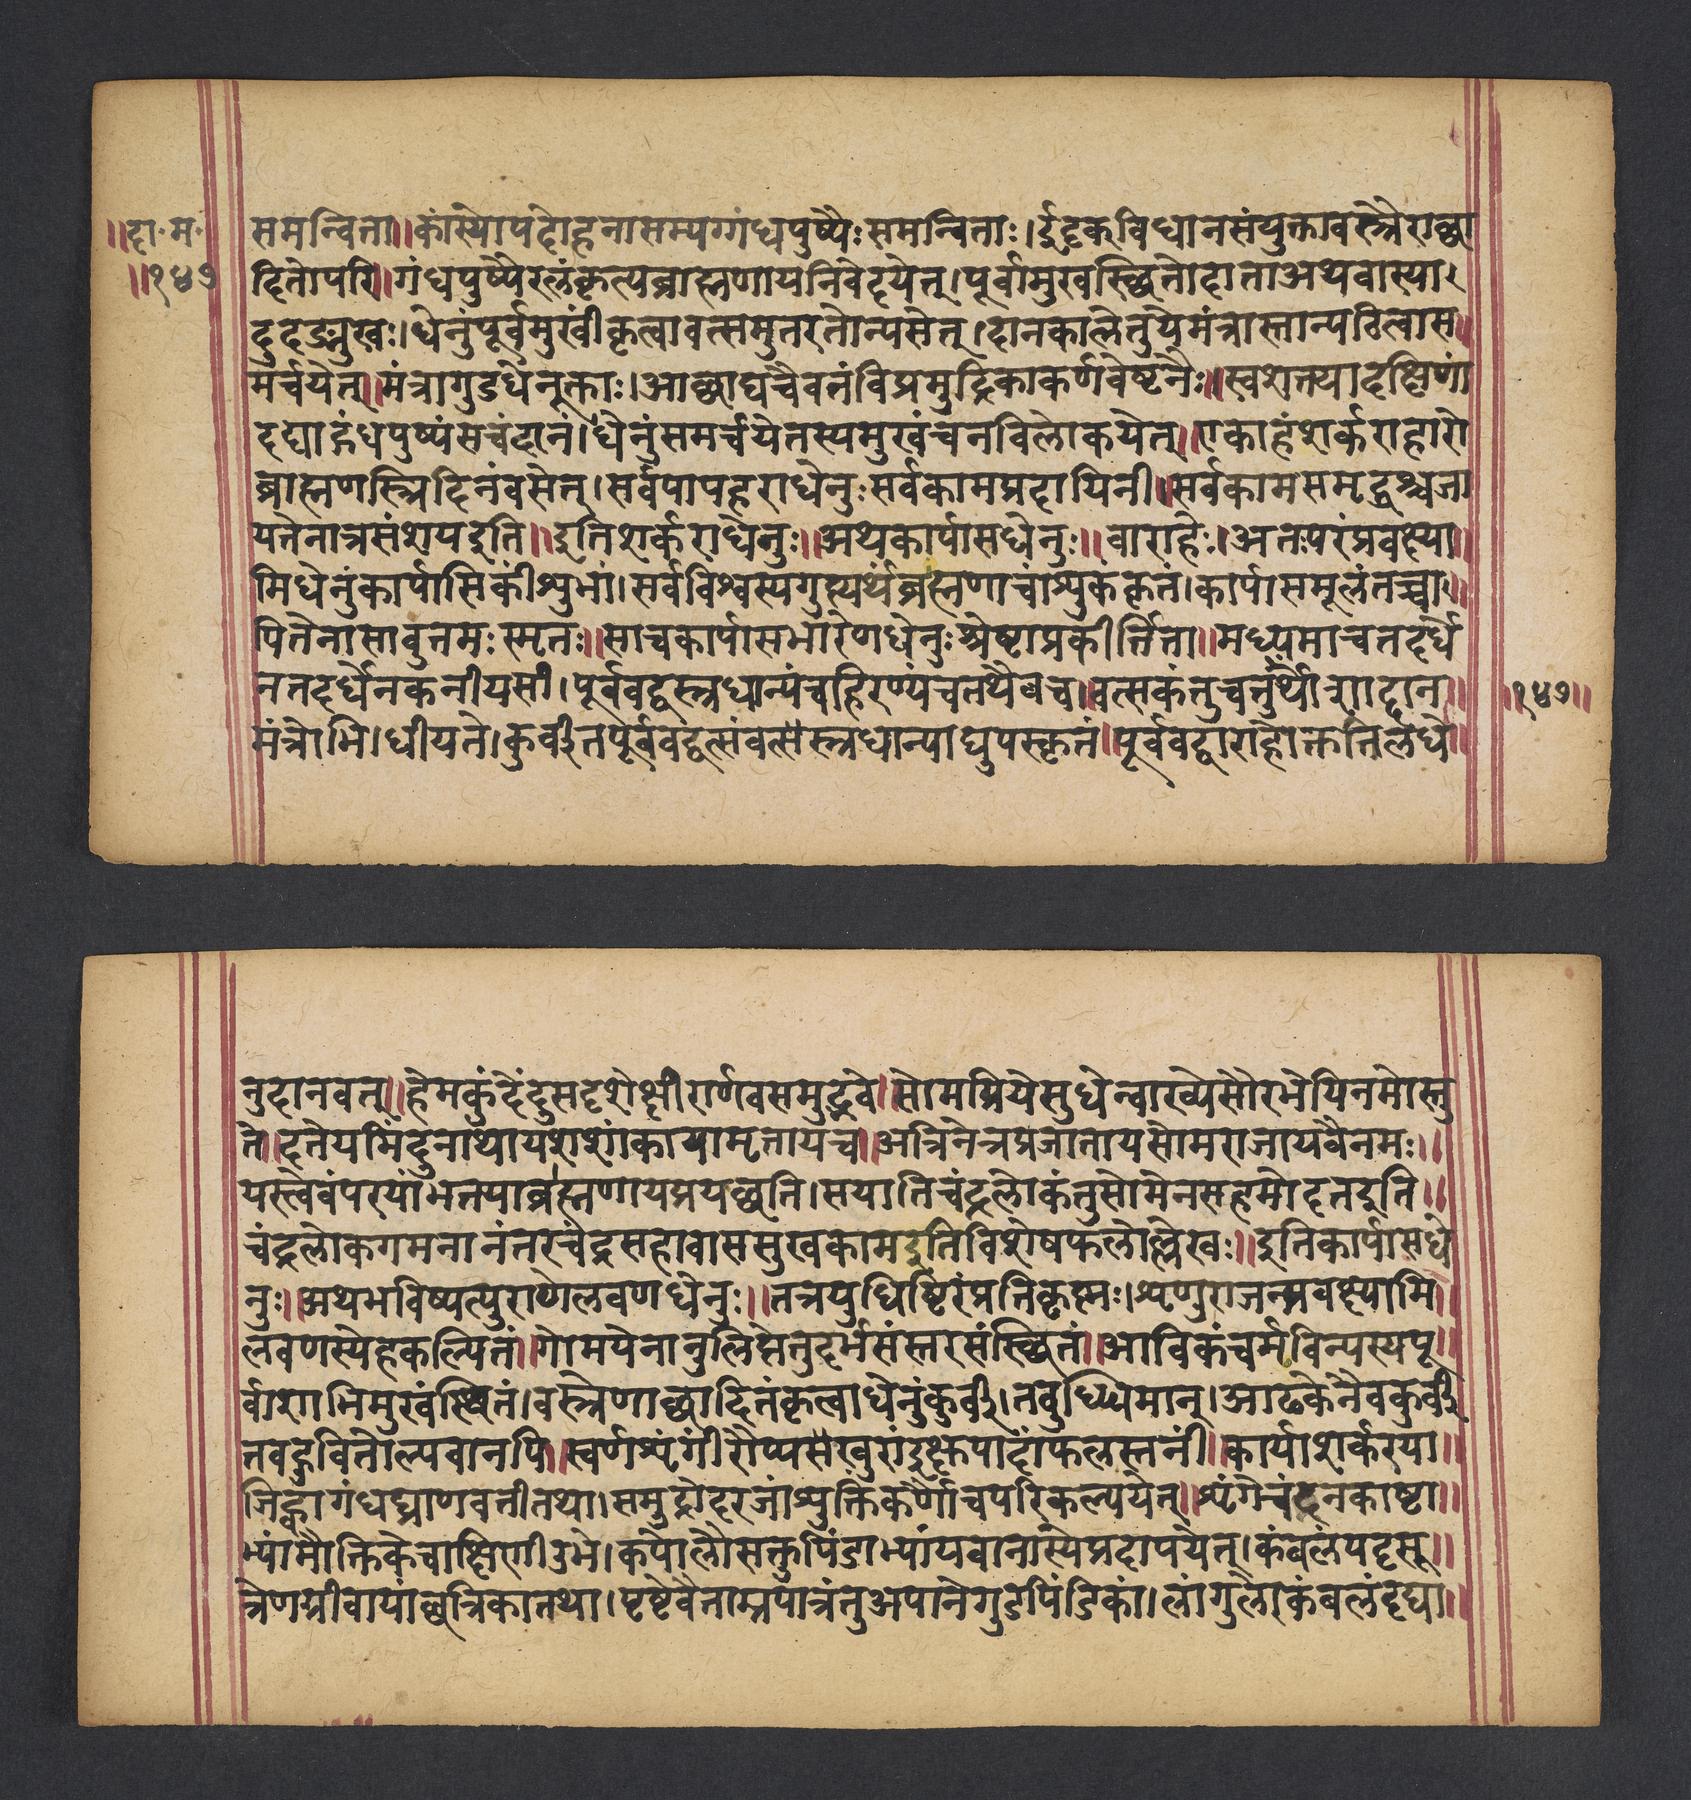 ॥दा॰म॰
॥१४७
समन्विता॥कांस्योपदोहनासम्यग्गंधपुष्पैःसमन्विताः।ईदृकविधानसंयुक्तावस्त्रैराछा
दितोपरि॥गंधपुष्पैरलंकृत्यब्राह्मणायनिवेदयेत्।पूर्वामुखस्छितोदाताअथवास्या।
दुदङ्मुखः।धेनुंपूर्वमुखींकृत्वावत्समुतरतोन्यसेत्।दानकालेतुयेमंत्रास्तान्पठित्वास॥
मर्चयेत्॥मंत्रागुडधेनूक्ताः।आछाद्यचैवतंविप्रमुद्रिकाकर्णवेष्टनैः॥स्वशक्त्यादक्षिणां
दद्याद्गंधपुष्पंसचंदनं।धेनुंसमर्चयेतस्यमुखंचनविलोकयेत्॥एकाहंशर्कराहारो
ब्राह्मणस्त्रिदिनंवसेत्।सर्वपापहराधेनुःसर्वकामप्रदायिनी॥सर्वकामसमृद्धश्चजा
यतेनात्रसंशयइति॥इतिशर्कराधेनुः॥अथकार्पासधेनुः॥वाराहेः।अतःपरंप्रवक्ष्या॥
मिधेनुंकार्पासिकींशुभां।सर्वविश्वस्यगुह्यर्थंब्रह्मणाचांशुकंकृतं।कार्पासमूलंतच्चा।
पितेनासावुतमःस्मृतः॥साचकार्पासभारेणधेनुःश्रेष्टाप्रकीर्त्तिता॥मध्यमाचतदर्धे
नतदर्धेनकनीयसी।पूर्ववद्वस्त्रधान्यंचहिरण्यंचतथैवच॥वत्सकंतुचतुर्थांशाद्दान॥
॥१४७॥
मंत्रोभि।धीयते।कुर्वीतपूर्ववद्वत्संवस्त्रधान्याद्युपस्कृतं॥पूर्ववद्वाराहोक्ततिलधे॥
नुदानवत्॥हेमकुंदेंदुसदृशेक्षीरार्णवसमुद्भवे॥सोमप्रियेसुधेन्वाख्येसौरभेयिनमोस्तु
ते॥दतेयमिंदुनाथायशशांकायामृतायच॥अत्रिनेत्रप्रजातायसोमराजायवैनमः॥
यस्त्वेवंपरयाभक्त्याब्राह्मणायप्रयछति।सयातिचंद्रलोकंतुसोमेनसहमोदतइति॥
चंद्रलोकगमनानंतरचंद्रसहावाससुखकामइतिविशेषफलोल्लेखः॥इतिकार्पासधे
नुः॥अथभविष्यत्पुराणेलवणधेनुः॥तत्रयुधिष्टिरंप्रतिकृष्णः।शृणुराजन्प्रवक्ष्यामि॥
लवणस्येहकल्पितं॥गोमयेनानुलिप्तेतुदर्भसंस्तरसंस्छितं॥आविकंचर्मविन्यस्यपू॥
र्वाशाभिमुखंस्छितं।वस्त्रेणाछादितंकृत्वाधेनुंकुर्वी।तबुध्धिमान्।आढकेनैवकुर्वी
तवद्हुवितोल्पवानपि॥स्वर्णशृंगींरौप्यखुरांइक्षुपादांफलस्तनीं॥कार्याशर्करया॥
जिह्वागंधघ्राणवतीतथा।समुद्रोदरजांशुक्तिंकर्णौचपरिकल्पयेत्॥शृंगेचंदनकाष्टा॥
भ्यांमौक्तिकेचाक्षिणीउभे।कपोलौसक्तुपिंडाभ्यांयवानास्येप्रदापयेत्।कंबलंपट्टसू॥
त्रेणग्रीवायांछत्रिकातथा।पृष्टेवैताम्रपात्रंतुअपानेगुडपिंडिकां।लांगुलेकंबलंदद्या॥